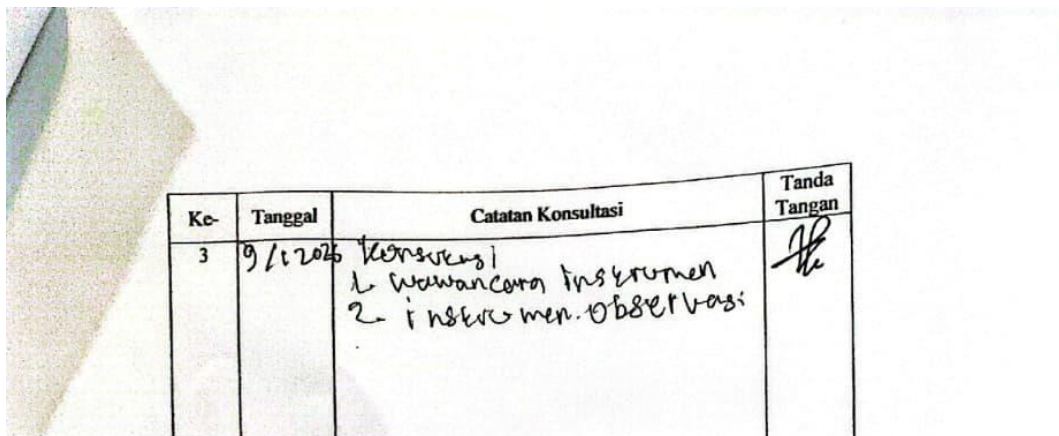 Ke- Tanggal Catatan Konsultasi Tanda Tangan
3 9/1 2026 Konsultasi
1. wawancara Instrumen
2. instrumen observasi